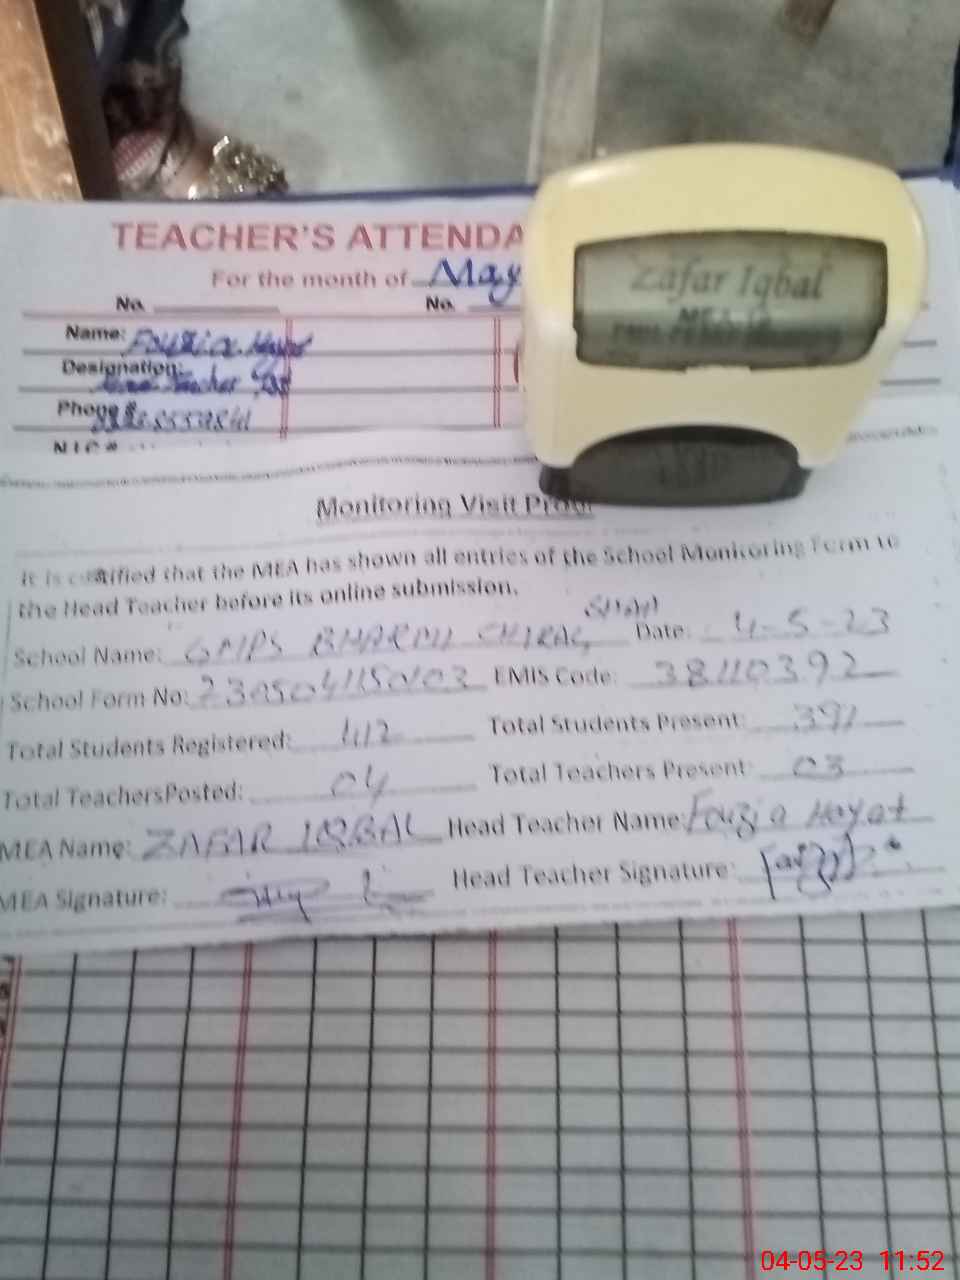 TEACHER'S ATTENDA
For the month of May
No.
No.
Name: Fouzia Hayat
Designation:
Head Teacher
Phone #
N.I.C #
Zafar Iqbal
Monitoring Visit Proof
It is certified that the MEA has shown all entries of the School Monitoring Form to
the Head Teacher before its online submission.
School Name: GMPS CHIRAG SHAH Date: 4-5-23
School Form No: EMIS Code: 38110392
Total Students Registered: 412 Total Students Present: 391
Total TeachersPosted: 04 Total Teachers Present: 03
MEA Name: ZAFAR IQBAL Head Teacher Name: Fouzia Hayat
MEA Signature: Head Teacher Signature:
04-05-23 11:52